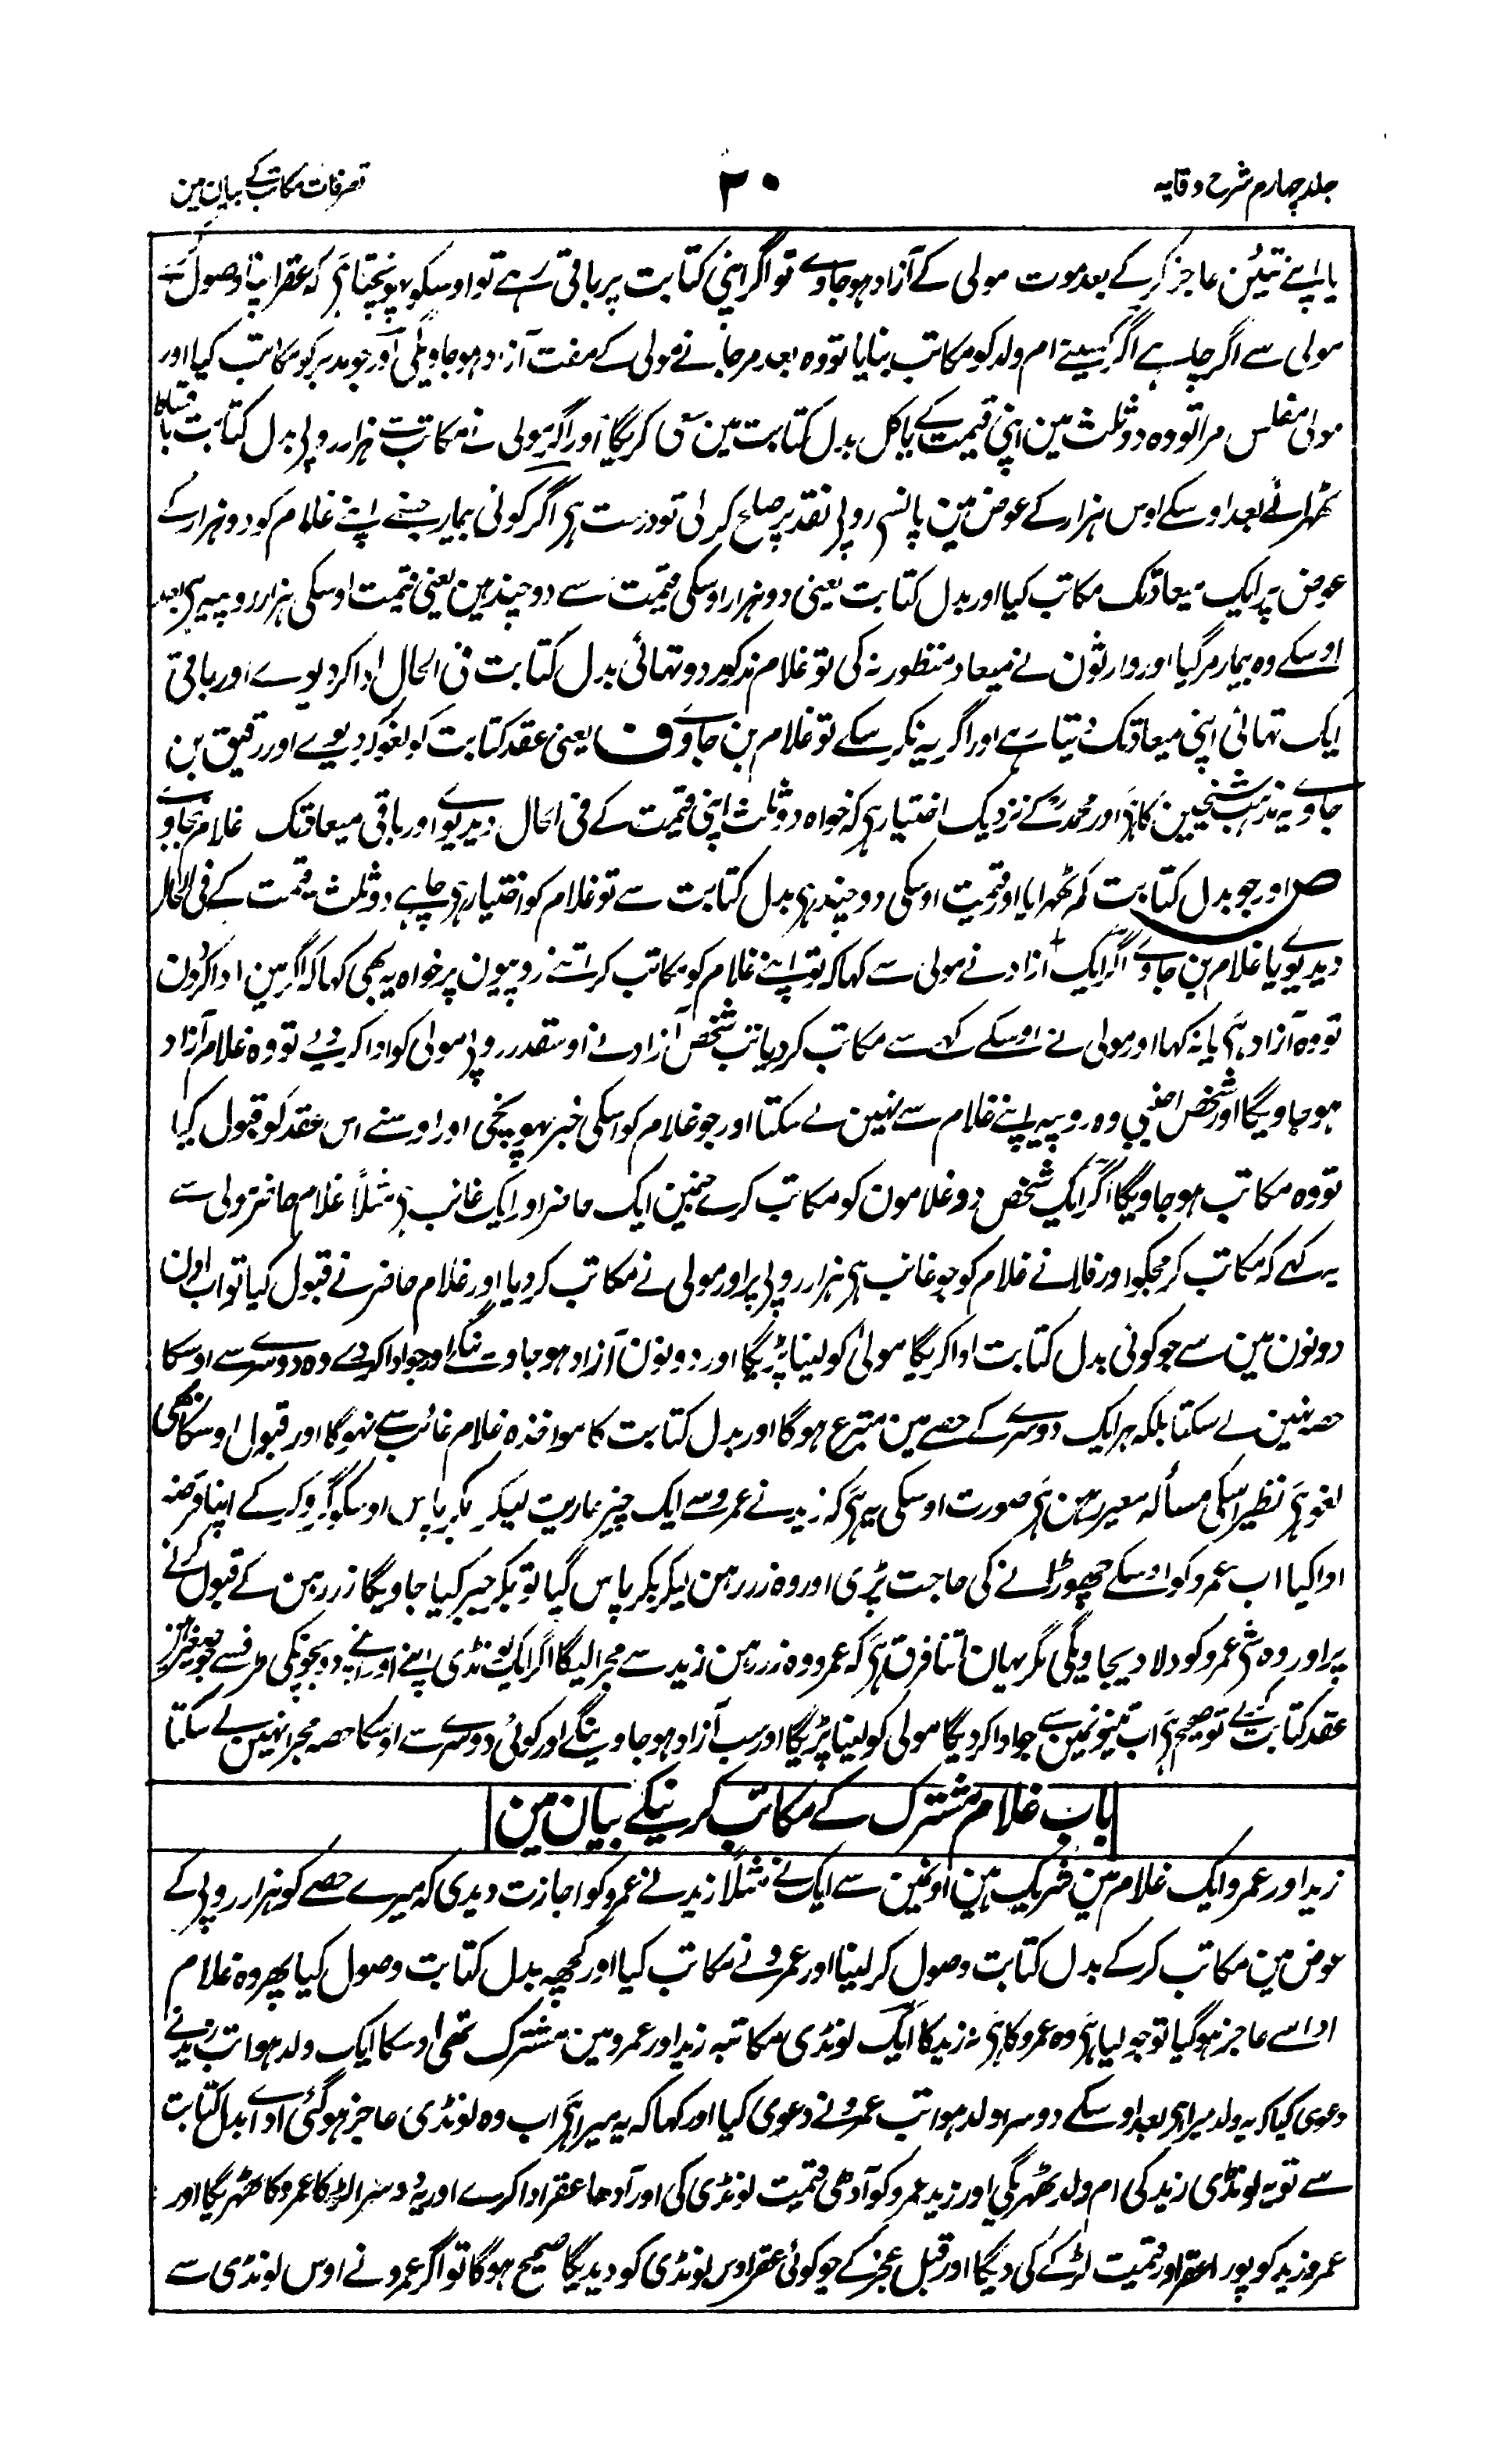 جلد چہارم شرح وقایہ
۲۰
تصرفات مکاتب کے بیان مین
یا اپنے تئین عاجز کرکے بعد موت مولی کے آزاد ہو جاوے تو اگر اپنی کتابت پر باقی رہے ہے تو اوسکو پہونچتا ہی کہ عقر اپنا وصول کرے
مولی سے اگر چاہے اگر کسینے ام ولد کو مکاتب بنایا تو وہ بعد مرجانے مولی کے مفت آزاد ہو جاویگی اور جو مدبر کو مکاتب کیا اور
مولی مفلس مرا تو وہ دو ثلث مین اپنی قیمت کے یا کل بدل کتابت مین سعی کریگا اور اگر مولی نے مکاتب سے ہزار روپی بدل کتابت باقساط
ٹھہرائے بعد اوسکے اوس ہزار کے عوض مین پانسی روپی نقد پر صلح کر لی تو درست ہی اگر کوئی بیمار جسنے اپنے غلام کو دو ہزار کے
عوض پر ایک میعاد تک مکاتب کیا اور بدل کتابت یعنی دو ہزار اوسکی قیمت سے دو چند ہین یعنی قیمت اوسکی ہزار روپیہ ہی بعد
اوسکے وہ بیمار مرگیا اور وارثون نے میعاد منظور نہ کی تو غلام مذکور دو تہائی بدل کتابت فی الحال ادا کر دیوے اور باقی
ایک تہائی اپنی میعاد تک دیتا رہے اور اگر یہ نکر سکے تو غلام بن جاوے ف یعنی عقد کتابت کو لغو کر دیوے اور رقیق بن
جاوے یہ مذہب شیخین کا ہی اور محمد کے نزدیک اختیار ہی کہ خواہ دو ثلث اپنی قیمت کے فی الحال دیدیوے اور باقی میعاد تک غلام بنجاوے
ص اور جو بدل کتابت کم ٹھہرایا اور قیمت اوسکی دو چند ہی بدل کتابت سے تو غلام کو اختیار ہی چاہے دو ثلث قیمت کے فی الحال
دیدیوے یا غلام بن جاوے اگر ایک آزاد نے مولی سے کہا کہ تو اپنے غلام کو مکاتب کر اتنے روپیون پر خواہ یہ بھی کہا کہ اگر مین ادا کردون
تو وہ آزاد ہی یا نہ کہا اور مولی نے اوسکے کہے سے مکاتب کر دیا تب شخص آزاد نے اوسقدر روپی مولی کو ادا کر دیے تو وہ غلام آزاد
ہو جاویگا اور شخص اجنبی وہ روپیہ اپنے غلام سے نہین لے سکتا اور جو غلام کو اسکی خبر پہونچی اور اوسنے اس عقد کو قبول کیا
تو وہ مکاتب ہو جاویگا اگر ایک شخص دو غلامون کو مکاتب کرے جنمین ایک حاضر اور ایک غائب ہی مثلاً غلام حاضر مولی سے
یہ کہے کہ مکاتب کر مجکو اور فلانے غلام کو جو غائب ہی ہزار روپی پر اور مولی نے مکاتب کر دیا اور غلام حاضر نے قبول کیا تو اب اون
دونون مین سے جو کوئی بدل کتابت ادا کریگا مولی کو لینا پڑیگا اور دونون آزاد ہو جاوینگے اور جو ادا کرے وہ دوسرے سے اوسکا
حصہ نہین لے سکتا بلکہ ہر ایک دوسرے کے حصے مین متبرع ہوگا اور بدل کتابت کا مواخذہ غلام غائب سے نہوگا اور قبول اوسکا بھی
لغو ہی نظیر اسکی مسألہ معیر رہن ہی صورت اوسکی یہ ہی کہ زید نے عمرو سے ایک چیز عاریت لیکر بکر پاس اوسکو گرو کر کے اپنا قرضہ
ادا کیا اب عمرو کو اوسکے چھوڑانے کی حاجت پڑی اور وہ زر رہن لیکر بکر پاس گیا تو بکر جبر کیا جاویگا زر رہن کے قبول کرنے
پر اور وہ شی عمرو کو دلا دیجاویگی مگر یہان اتنا فرق ہی کہ عمرو وہ زر رہن زید سے مجرا لیگا اگر ایک لونڈی اپنے اور اپنے دو بچونکی طرف سے جو صغیر ہین
عقد کتابت کرے تو صحیح ہی اب تینونمین سے جو ادا کردیگا مولی کو لینا پڑیگا اور سب آزاد ہو جاوینگے اور کوئی دوسرے سے اوسکا حصہ مجرا نہین لے سکتا
باب غلام مشترک کے مکاتب کرنیکے بیان مین
زید اور عمرو ایک غلام مین شریک ہین اونمین سے ایک نے مثلاً زید نے عمرو کو اجازت دیدی کہ میرے حصے کو ہزار روپی کے
عوض مین مکاتب کرکے بدل کتابت وصول کر لینا اور عمرو نے مکاتب کیا اور کچھہ بدل کتابت وصول کیا پھر وہ غلام
ادا سے عاجز ہو گیا تو جو لیا ہی وہ عمرو کا ہی نہ زید کا ایک لونڈی مکاتبہ زید اور عمرو مین مشترک تھی اوسکا ایک ولد ہوا تب زید نے
دعوی کیا کہ یہ ولد میرا ہی بعد اوسکے دوسرا ولد ہوا تب عمرو نے دعوی کیا اور کہا کہ یہ میرا ہی اب وہ لونڈی عاجز ہو گئی اداے بدل کتابت
سے تو یہ لونڈی زید کی ام ولد ٹھہریگی اور زید عمرو کو آدھی قیمت لونڈی کی اور آدھا عقر ادا کرے اور یہ دوسرا لڑکا عمرو کا ٹھہریگا اور
عمرو زید کو پورا عقر اور قیمت لڑکے کی دیگا اور قبل عجز کے جو کوئی عقر اوس لونڈی کو دیدیگا صحیح ہوگا تو اگر عمرو نے اوس لونڈی سے